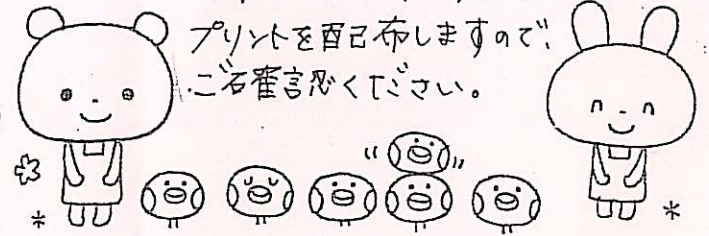 プリントを配布しますので、
ご確認ください。